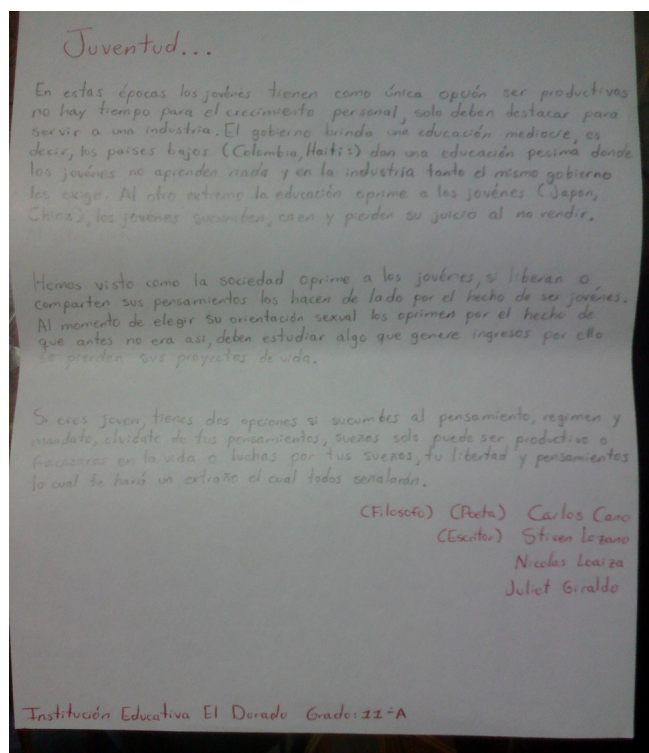 Juventud...
En estas épocas los jovénes tienen como única opción ser productivos
no hay tiempo para el crecimiento personal, solo deben destacar para
servir a una industria. El gobierno brinda una educación mediocre, es
decir, los paises bajos (Colombia, Haitis) dan una educación pesima donde
los jovénes no aprenden nada y en la industria tanto el mismo gobierno
les exige. Al otro extremo la educación oprime a los jovénes (Japon,
China), los jovénes sucumben, caen y pierden su juicio al no rendir.
Hemos visto como la sociedad oprime a los jovénes, si liberan o
comparten sus pensamientos los hacen de lado por el hecho de ser jovénes.
Al momento de elegir su orientación sexual los oprimen por el hecho de
que antes no era asi, deben estudiar algo que genere ingresos por ello
se pierden sus proyectos de vida.
Si eres joven, tienes dos opciones si sucumbes al pensamiento, regimen y
mandato, olvidate de tus pensamientos, sueños solo puede ser productivo o
fracasaras en la vida o luchas por tus sueños, tu libertad y pensamientos
lo cual te hará un extraño el cual todos señalarán.
(Filosofo) (Poeta) Carlos Cano
(Escritor) Stiven Lozano
Nicolas Loaiza
Juliet Giraldo
Institución Educativa El Dorado Grado: 11-A